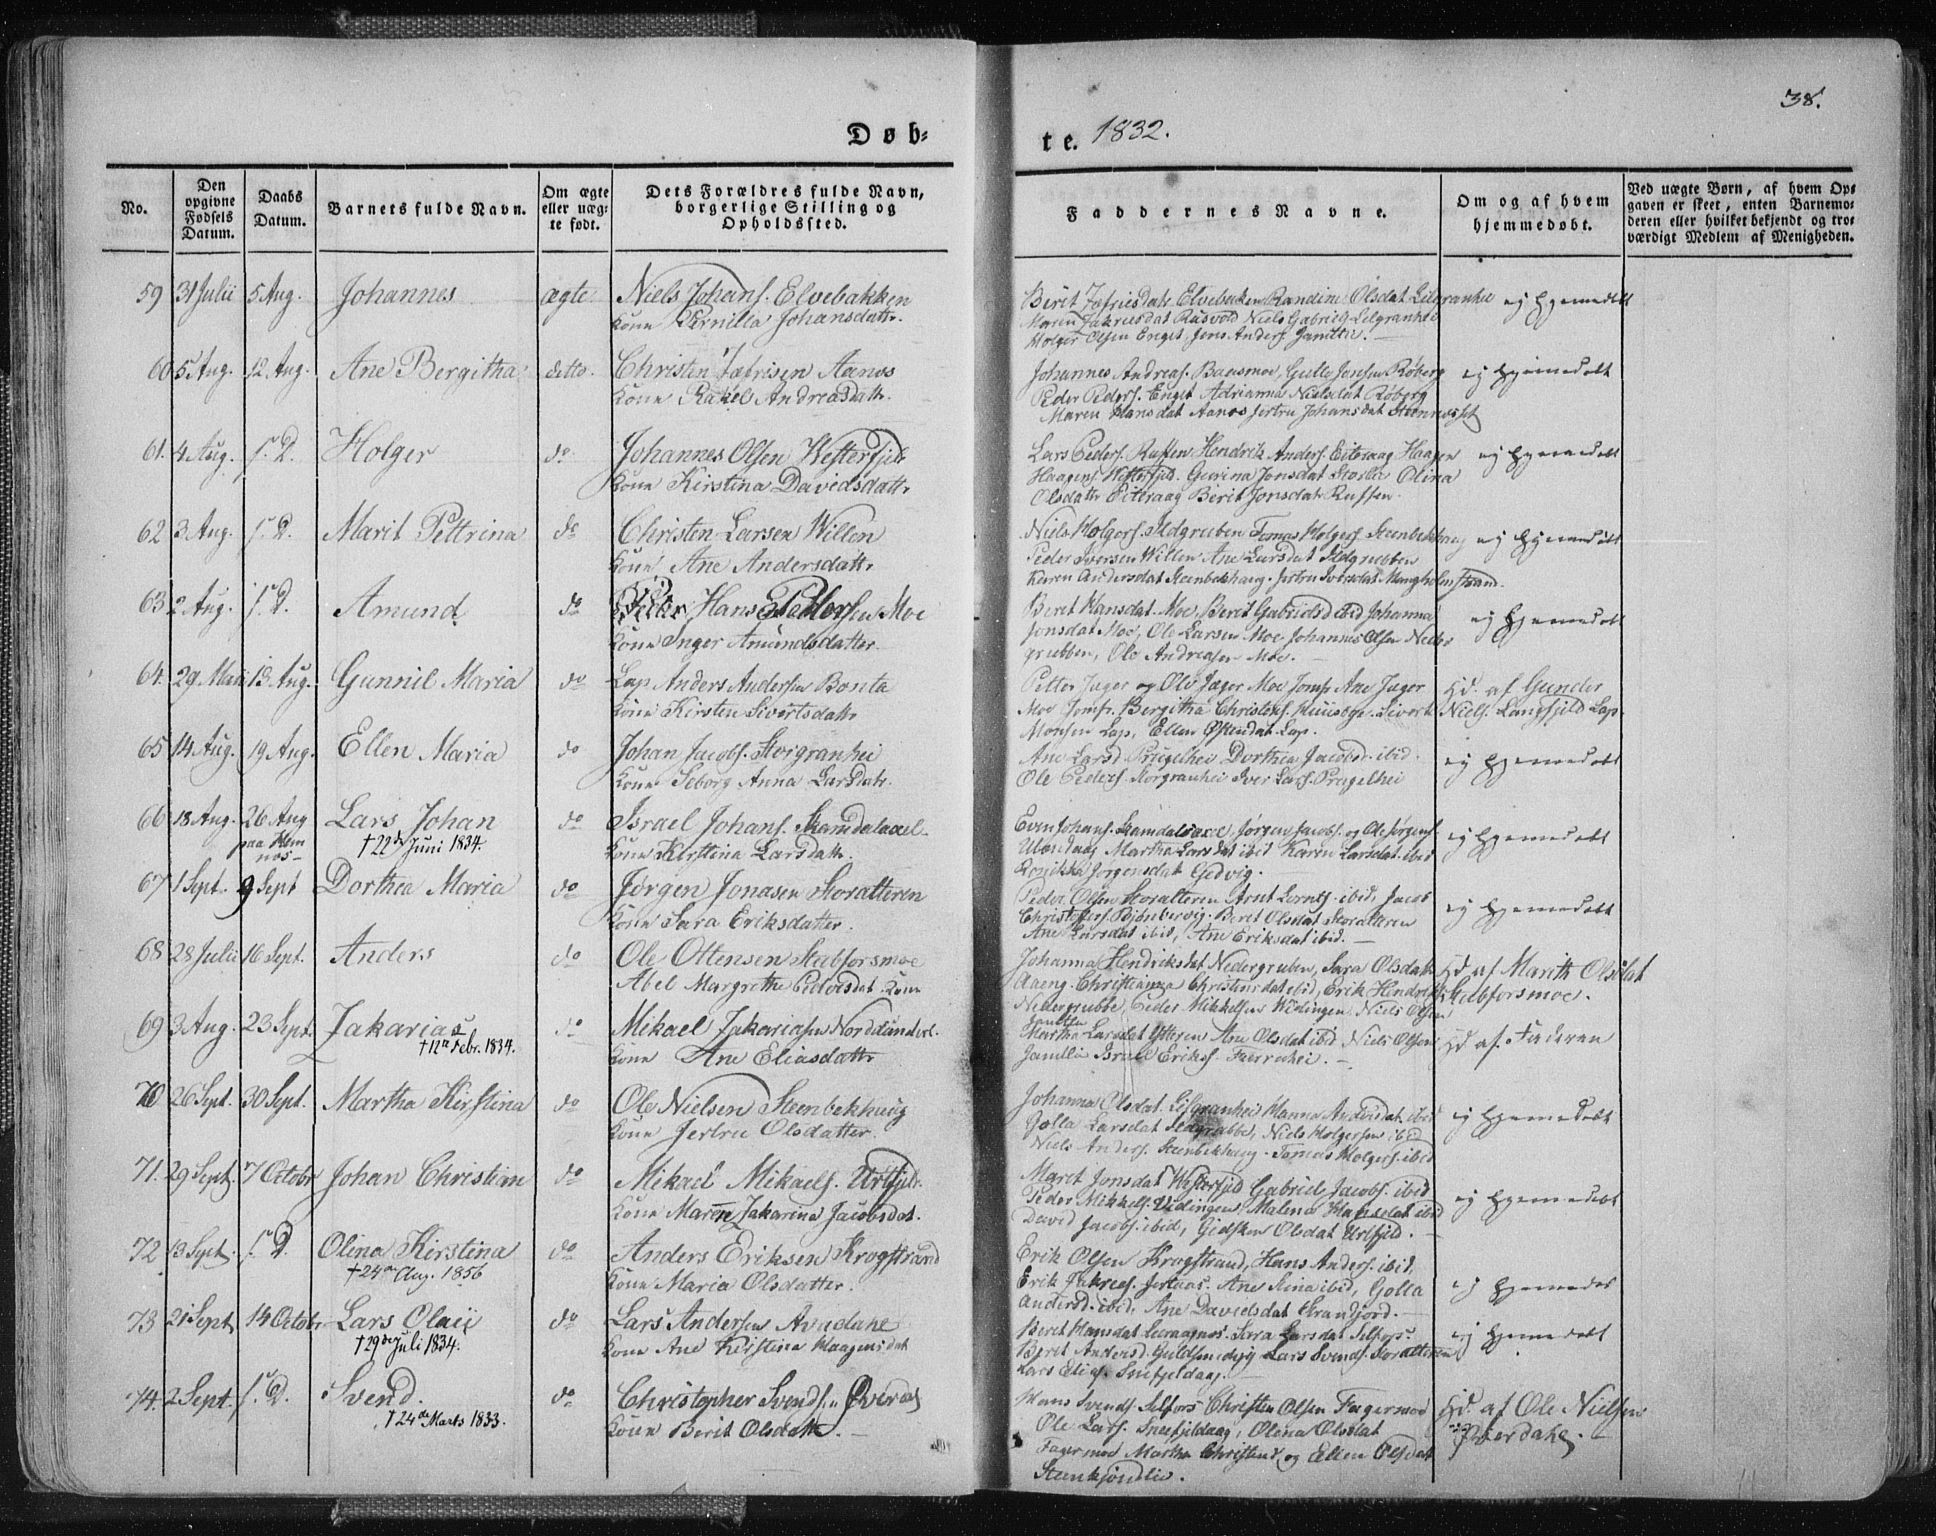 38.
Døb=
te. 1832.
No.
Den opgivne Fødsels Datum.
Daabs Datum.
Barnets fulde Navn.
Om ægte eller uæg- te født.
Dets Forældres fulde Navn, borgerlige Stilling og Opholdssted.
Faddernes Navne.
Om og af hvem hjemmedøbt.
Ved uægte Børn, af hvem Op= gaven er skeet, enten Barnemo= deren eller hvilket bekjendt og tro= værdigt Medlem af Menigheden.
59 31 Julii 5 Aug. Johannes ægte Niels Johans. Elvebakken
Kone Pernilla Johansdatr.
Maren Zakriesdat Niels Gabriels Lilgranhei
Holger Olsen Enget, Jens Anders.
ej hjemedøbt
60 5 Aug. 12 Aug. Ane Bergitha ditto. Christen Zafrisen Aanos
Kone Rakel Andreasdatr.
Johannes Andreas. Baasmoe, Gulle Jonsen Røberg
Peder Peders. Enget Adrianna Nielsdat Røberg
Maren Hansdat Aanos Jertru Johansdat
ej hjemedøbt
61. 4 Aug. s. D. Holger do Johannes Olsen Westerfjeld
Kone Kirstina Davedsdatr.
Lars Peders. Russen Hendrik Anders. Eiteraag Haagen
Haagens. Westerfjeld. Jonsdat Olina
Olsdatr Eiteraag Berit Jonsdatr Russen.
ej hjemedøbt
62 3 Aug. s. D. Marit Pettrina do Christen Larsen Willen
Kone Ane Andersdatr.
Niels Holgers. Ildgruben Tomas Holgers. Steenbekhaug
Peder Iversen Willen Ane Larsdat Ildgrubben
Karen Andersdat Steenbekhaug. Jertru Iversdat Mangholmstrand.
ej hjemedøbt
63 2 Aug. s. D. Amund do Hans Pedersen Moe
Kone Inger Amundsdatter
Beret Hansdat Moe, Berit Gabrielsd ibid Johanna
Jonsdat Moe, Ole Larsen Moe Johannes Olsen Neder
grubben, Ole Andreasen Moe.
ej hjemedøbt
64. 29 Maii Aug. Gunnil Maria do Lap Anders Andersen Bonta
Kone Kirsten Sivertsdatr
Petter Jæger og Ole Jæger Moe Jomf. Ane Jæger
Moe Jomf. Bergitha Christens. Sivert
Monsen Lap, Ellen Lap.
Hd. af Gunder
Niels. Langfjeld Lap
65 14 Aug. 19 Aug. Ellen Maria do Johan Jacobs. Storgranhei
Kone Seborg Anna Larsdatr.
Ane Larsd. Prugelhei Dorthea Jacobsd. ibid.
Ole Peders. Storgranhei Iver Lars. Prugelhei
ej hjemedøbt
66 18 Aug. 26 Aug paa Hem nos Lars Johan do Israel Johans. Skamdalaxel.
† 22de Juni 1834.
Kone Kirsttina Larsdatr.
Even Johans. Skamdalsaxel, Jørgen Jacobs. og Ole Jørgens.
Martha Larsdat ibid Karen Larsdat ibid
Jørgensdat
ej hjemedøbt
67 1 Sept. 9 Sept Dorthea Maria do Jørgen Jonasen Storalteren
Kone Sara Eriksdatter.
Peder Olsen Storalteren Arnt Lornts. ibid, Jacob
Christoffers. Beret Olsdat Storalteren
Ane Larsdat ibid, Ane Eriksdat ibid.
ej hjemedøbt
68 28 Julii 16 Sept. Anders do Ole Ottensen Stabforsmoe
Abel Margrethe Pedersdat Kone
Johanna Hendriksdat Nedergruben, Sara Olsdatr
Christianna Christensdat ibid, Erik Hendriks.
Nedergrubbe, Peder Mikkelsen Widingen, Niels Olsen
Hd af Marith Olsdat
Stabforsmoe.
69 3 Aug. 23 Sept. Zakarias do Mikael Zakariasen
† 12te Febr. 1834.
Kone Ane Eliasdatr
Martha Larsdat Ytteren Ane Olsdat ibid Niels Olsen
Israel Eriks.
Hd. af. Faderen
70 26 Sept. 30 Sept. Martha Kirstina do Ole Nielsen Steenbekhaug
Kone Jertru Olsdatter.
Johanna Olsdat. Lilgranhei Hanna Andersdat. ibid
Golla Larsdat Ildgrubbe, Niels Holgersen ibid
Niels Anders. Steenbekhaug. Tomas Holgers. ibid
ej hjemedøbt
71. 29 Sept. 7 Octobr Johan Christian do Mikael Mikaels. Urtfjeld.
Kone Maren Zakarina Jacobsdat.
Maret Jonsdat Westerfjeld Gabriel Jacobs. ibid
Peder Mikkels. Vidingen, Malena Hansdat ibid
David Jacobs. ibid, Gidsken Olsdat Urtfjeld.
ej hjemedøbt
72 13 Sept. s. D. Olina Kirstina do Anders Eriksen Krogstrand
† 24de Aug. 1856
Kone Maria Olsdatter.
Erik Olsen Krogstrand, Hans Anders. ibid,
Erik Zakries. Ane ibid, Golla
Andersd. ibid, Ane Davidsdat Strandjord.
ej hjemedøbt
73 21 Sept 14 Octobr Lars Olaii do Lars Andersen Avadahl
† 29de Juli 1834.
Kone Ane Kirstina Haagensdat
Beret Hansdat Sara Larsdat Selfors.
Berit Andersd. Guldsmedvig Lars Svends. Storalteren
Lars Snefjeldaag.
ej hjemedøbt
74. 2 Sept. s. D. Svend. do Christopher Svends. Qverdal
† 24de Marts 1833.
Kone Berit Olsdatter.
Hans Svends Selfors Christen Olsen Fagermoe
Ole Lars. Snefjeldaag, Olena Olsdat
Fagermoe Martha Christensd og Ellen Olsdat
Steenkjønlie.
Hd. af Ole Nielsen